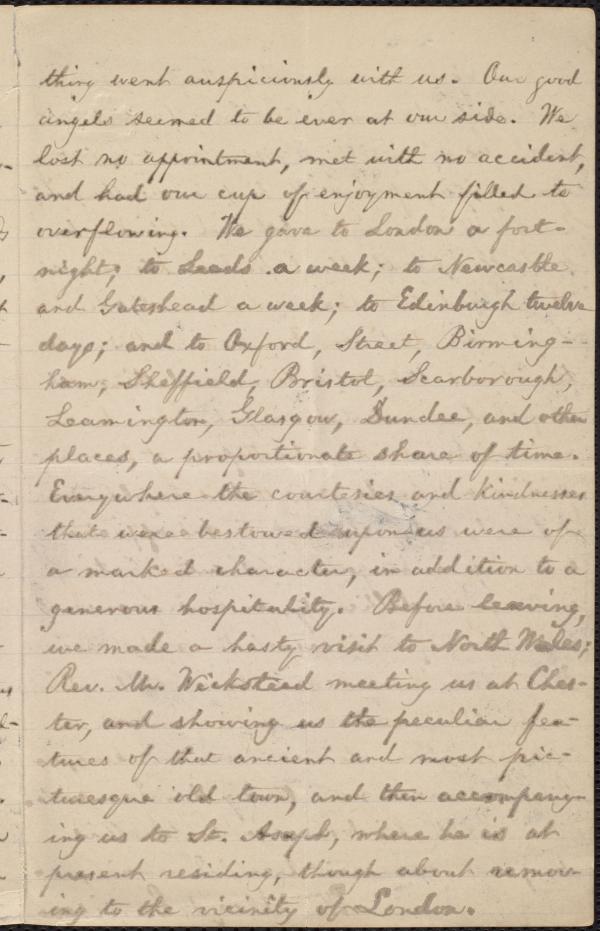 thing went auspiciously with us. Our good
angels seemed to be ever at our side. We
lost no appointment, met with no accident,
and had our cup of enjoyment filled to
overflowing. We gave to London a fort-
night; to Leeds a week; to Newcastle
and Gateshead a week; to Edinburgh twelve
days; and to Oxford, Street, Birming-
ham, Sheffield, Bristol, Scarborough,
Leamington, Glasgow, Dundee, and other
places, a proportionate share of time.
Everywhere the courtesies and kindnesses
that were bestowed upon us were of
a marked character, in addition to a
generous hospitality. Before leaving,
we made a hasty visit to North Wales;
Rev. Mr. Wicksteed meeting us at Ches-
ter, and showing us the peculiar fea-
tures of that ancient and most pic-
turesque old town, and then accompany-
ing us to St. Asaph, where he is at
present residing, though about remov-
ing to the vicinity of London.